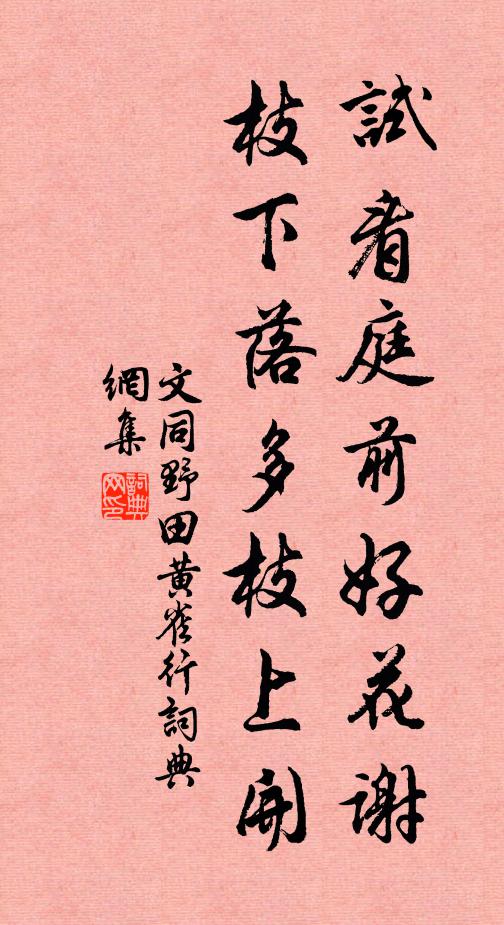 試看庭前好花謝
枝下落多枝上開
文同野田黃雀行詞典
網集
詞典
网印